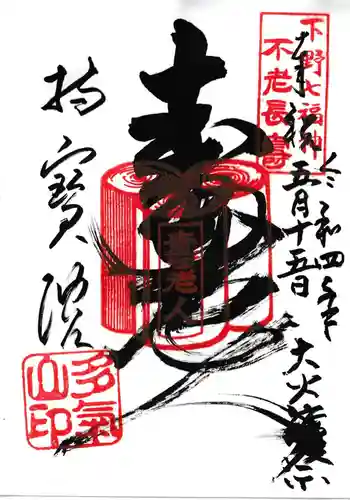 下野七福神
不老長寿
奉拝
令和四年
五月十五日
大火護摩祭
寿老人
持寳院
多氣
山印